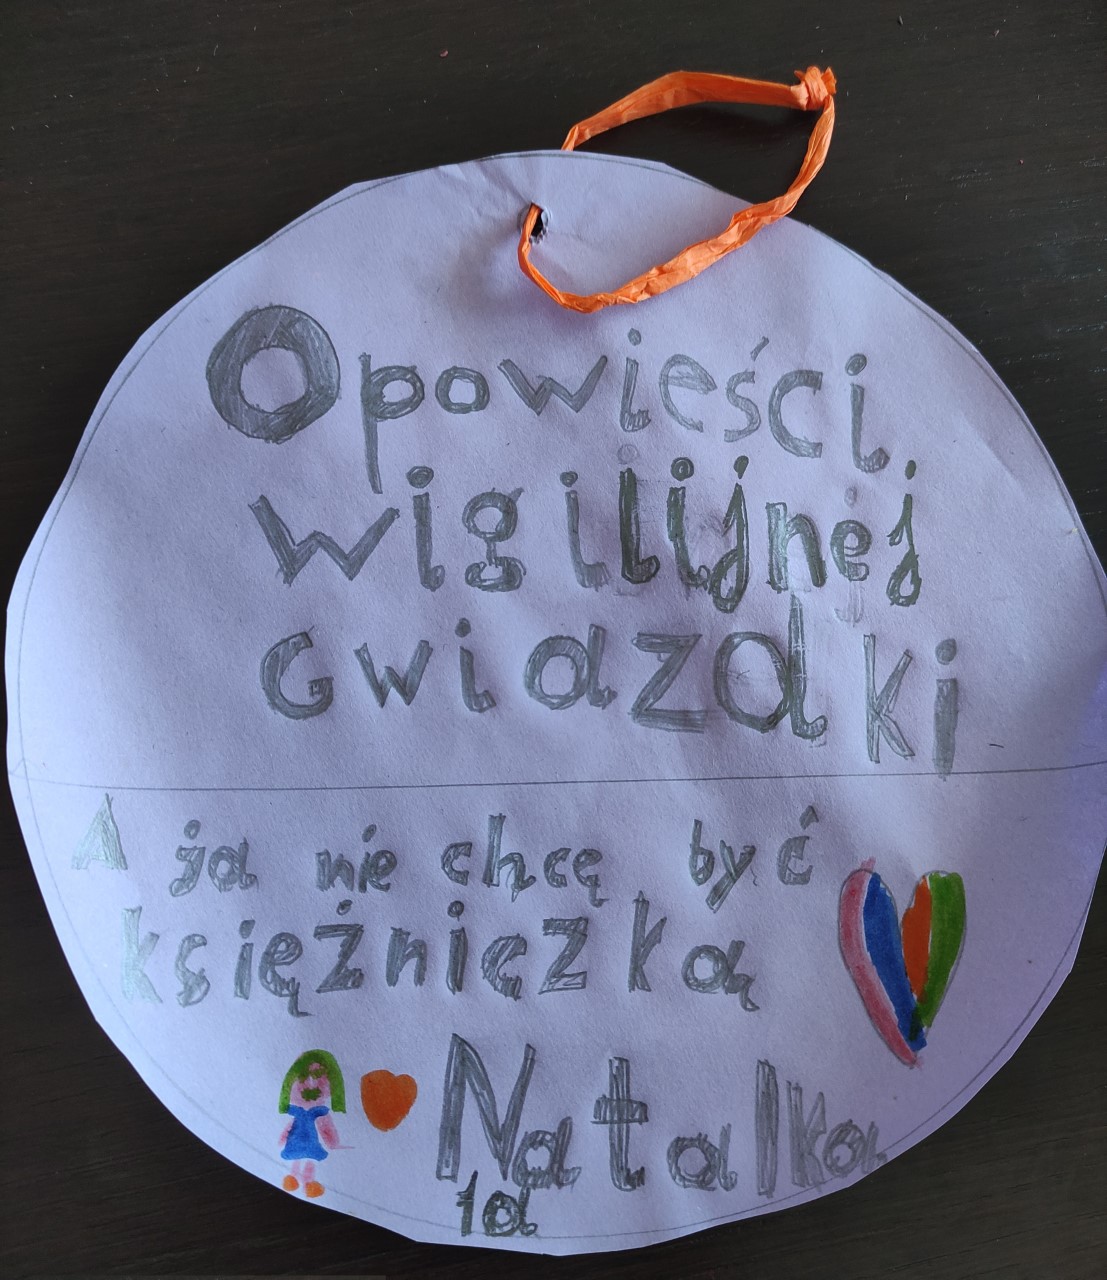 Opowieści
wigilijnej
Gwiazdki
A ja nie chcę być
księżniczką
Natalka
1a